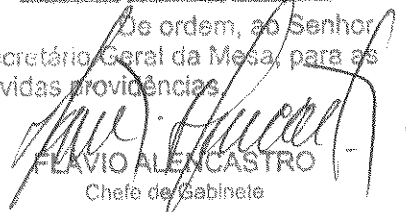 De ordem, ao Senhor
ecretário Geral da Mesa, para as
vidas providências.
FLAVIO ALENCASTRO
Chefe de Gabinete